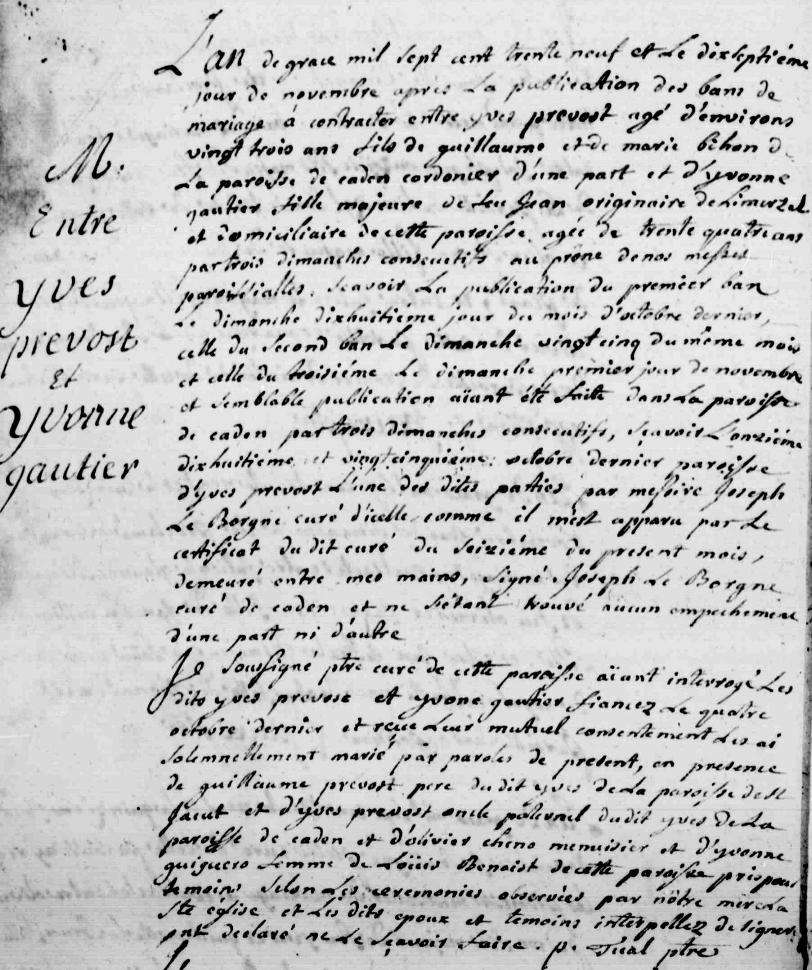 M.
Entre
yves
prevost
Et
yvonne
gautier
L'an de grace mil sept cent trente neuf et Le dixseptiéme
jour de novembre aprés La publication des bans de
mariage à contracter entre yves prevost agé d'environs
vingt trois ans fils de guillaume et de marie bihon d
La paroisse de caden cordonier d'une part et d'yvonne
gautier fille majeure de feu Jean originaire de Limerzel
et domiciliaire de cette paroisse agée de trente quatre ans
par trois dimanches consecutifs au prône de nos messes
paroissialles, sçavoir La publication du premier ban
Le dimanche dixhuitiéme jour du mois d'octobre dernier,
celle du second ban Le dimanche vingtcinq du même mois
et celle du troisiéme Le dimanche premier jour de novembre
et semblable publication aïant été faite dans La paroisse
de caden par trois dimanches consecutifs, sçavoir L'onziéme
dixhuitiéme et vingtcinquiéme octobre dernier paroisse
d'yves prevost L'une des dites parties par messire Joseph
Le Borgne curé d'icelle comme il m'est apparu par Le
certificat du dit curé du seiziéme du present mois,
demeuré entre mes mains, signé Joseph Le Borgne
curé de caden et ne s'étant trouvé aucun empechement
d'une part ni d'autre
Je soussigné ptre curé de cette paroisse aïant interrogé Les
dits yves prevost et yvone gautier fiancez Le quatre
octobre dernier et reçu Leur mutuel consentement Les ai
solemnellement marié par paroles de present, en presence
de guillaume prevost pere du dit yves de La paroisse de st
Jacut et d'yves prevost oncle paternel du dit yves de La
paroisse de caden et d'olivier cheno menuisier et d'yvonne
guiguero femme de Loüis Benoist de cette paroisse pris pour
temoins selon Les ceremonies observées par nôtre mere La
ste église et Les dits epoux et temoins interpellez de signer
ont declaré ne Le sçavoir faire. p. Tual ptre